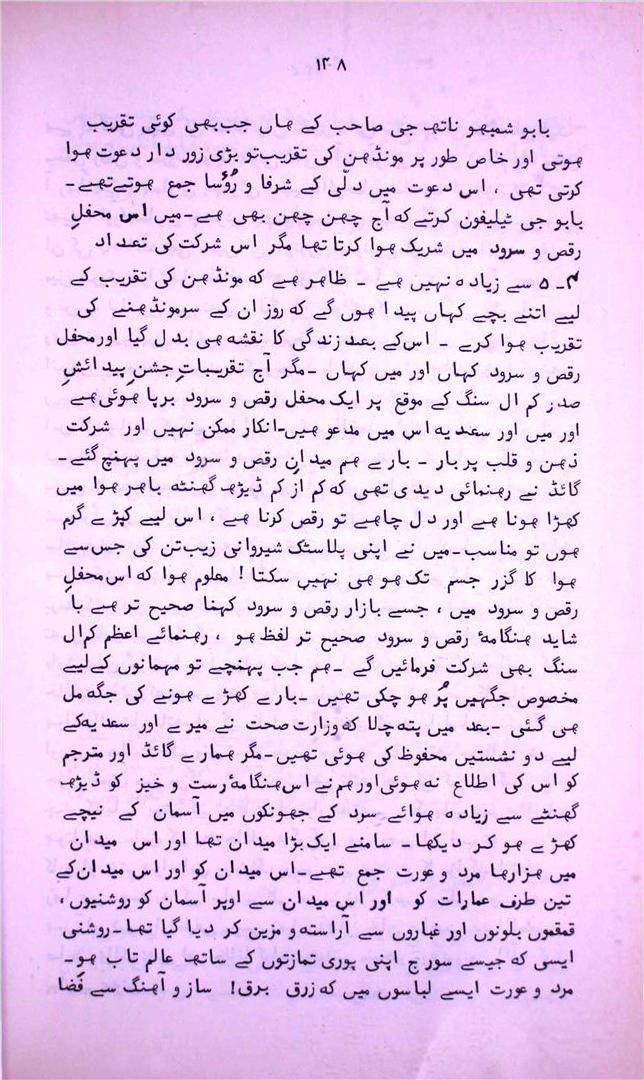 ۱۴۰۸
بابو شمبھو ناتھ جی صاحب کے ھاں جب بھی کوئی تقریب
ھوتی اور خاص طور پر مونڈھن کی تقریب تو بڑی زور دار دعوت ھوا
کرتی تھی ، اس دعوت میں دلّی کے شرفا و رؤسا جمع ھوتے تھے ـ
بابو جی ٹیلیفون کرتے کہ آج چھن چھن بھی ھے ـ میں اس محفلِ
رقص و سرود میں شریک ھوا کرتا تھا مگر اس شرکت کی تعداد
۴ ـ ۵ سے زیادہ نہیں ھے ـ ظاھر ھے کہ مونڈھن کی تقریب کے
لیے اتنے بچے کہاں پیدا ھوں گے کہ روز ان کے سرمونڈھنے کی
تقریب ھوا کرے ـ اس کے بعد زندگی کا نقشہ ھی بدل گیا اور محفل
رقص و سرود کہاں اور میں کہاں ـ مگر آج تقریباتِ جشنِ پیدائشِ
صدر کم ال سنگ کے موقع پر ایک محفل رقص و سرود برپا ھوئی ھے
اور میں اور سعدیہ اس میں مدعو ھیں ـ انکار ممکن نہیں اور شرکت
ذھن و قلب پر بار ـ بارے ھم میدانِ رقص و سرود میں پہنچ گئے ـ
گائڈ نے رھنمائی دیدی تھی کہ کم از کم ڈیڑھ گھنٹہ باھر ھوا میں
کھڑا ھونا ھے اور دل چاھے تو رقص کرنا ھے ، اس لیے کپڑے گرم
ھوں تو مناسب ـ میں نے اپنی پلاسٹک شیروانی زیب تن کی جس سے
ھوا کا گزر جسم تک ھو ھی نہیں سکتا ! معلوم ھوا کہ اس محفلِ
رقص و سرود میں ، جسے بازار رقص و سرود کہنا صحیح تر ھے یا
شاید ھنگامۂ رقص و سرود صحیح تر لفظ ھو ، رھنمائے اعظم کم ال
سنگ بھی شرکت فرمائیں گے ـ ھم جب پہنچے تو مہمانوں کے لیے
مخصوص جگہیں پُر ھو چکی تھیں ـ بارے کھڑے ھونے کی جگہ مل
ھی گئی ـ بعد میں پتہ چلا کہ وزارت صحت نے میرے اور سعدیہ کے
لیے دو نشستیں محفوظ کی ھوئی تھیں ـ مگر ھمارے گائڈ اور مترجم
کو اس کی اطلاع نہ ھوئی اور ھم نے اس ھنگامۂ رست و خیز کو ڈیڑھ
گھنٹے سے زیادہ ھوائے سرد کے جھونکوں میں آسمان کے نیچے
کھڑے ھو کر دیکھا ـ سامنے ایک بڑا میدان تھا اور اس میدان
میں ھزارھا مرد و عورت جمع تھے ـ اس میدان کو اور اس میدان کے
تین طرف عمارات کو اور اس میدان سے اوپر آسمان کو روشنیوں ،
قمقموں بلونوں اور غباروں سے آراستہ و مزین کر دیا گیا تھا ـ روشنی
ایسی کہ جیسے سورج اپنی پوری تمازتوں کے ساتھ عالم تاب ھو ـ
مرد و عورت ایسے لباسوں میں کہ زرق برق ! ساز و آھنگ سے فضا